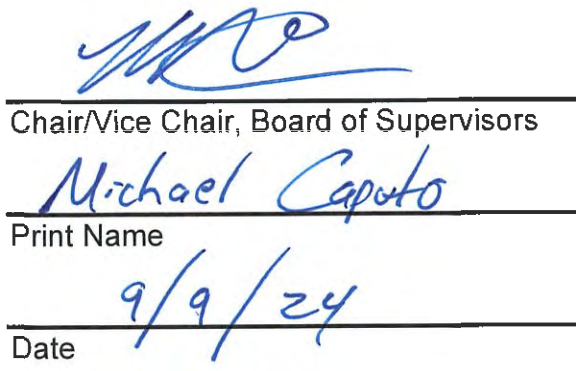 Chair/Vice Chair, Board of Supervisors
Michael Caputo
Print Name
9/9/24
Date